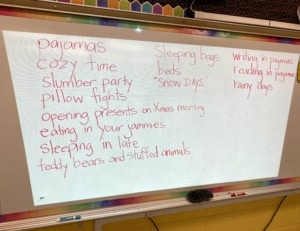 pajamas
cozy time
Slumber party
pillow fights
opening presents on Xmas morning
eating in your jammies
Sleeping in late
teddy bears and stuffed animals
Sleeping bags
beds
"Snow Days"
Writing in pajamas
reading in pajamas
rainy days